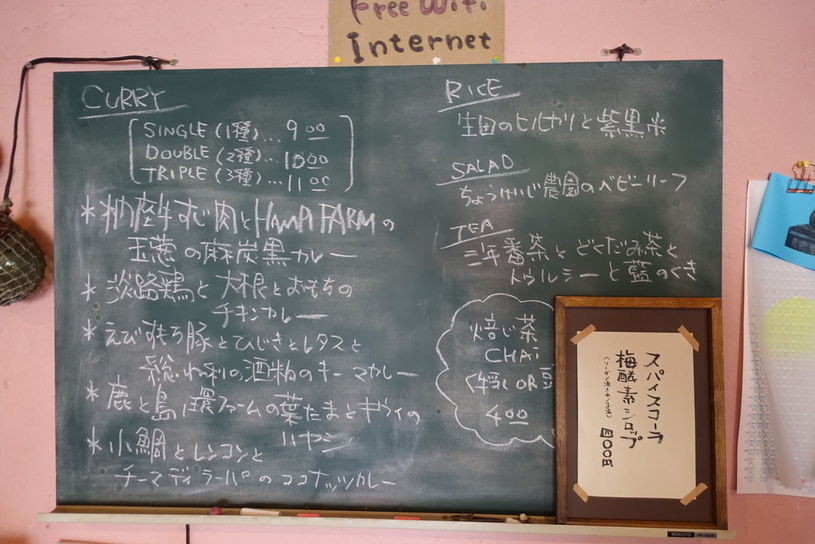 Free WiFi
Internet
CURRY
SINGLE (1種)... 900
DOUBLE (2種)... 1000
TRIPLE (3種)... 1100
牛すじ肉とHAMA FARMの
玉葱の麻炭黒カレー
* 淡路鶏と大根とおもちの
チキンカレー
* えびすもち豚とひじきとレタスと
の酒粕のキーマカレー
* 鹿と島環ファームの葉たまとキウイの
ハヤシ
* 小鯛とレンコンと
チーマディラーパのココナッツカレー
RICE
生田のヒカリと紫黒米
SALAD
農園のベビーリーフ
TEA
三年番茶とどくだみ茶と
トゥルシーと藍のくき
焙じ茶
CHAi
OR
400
スパイスコーラ
梅酵素シロップ
四〇〇円
KOKUYO